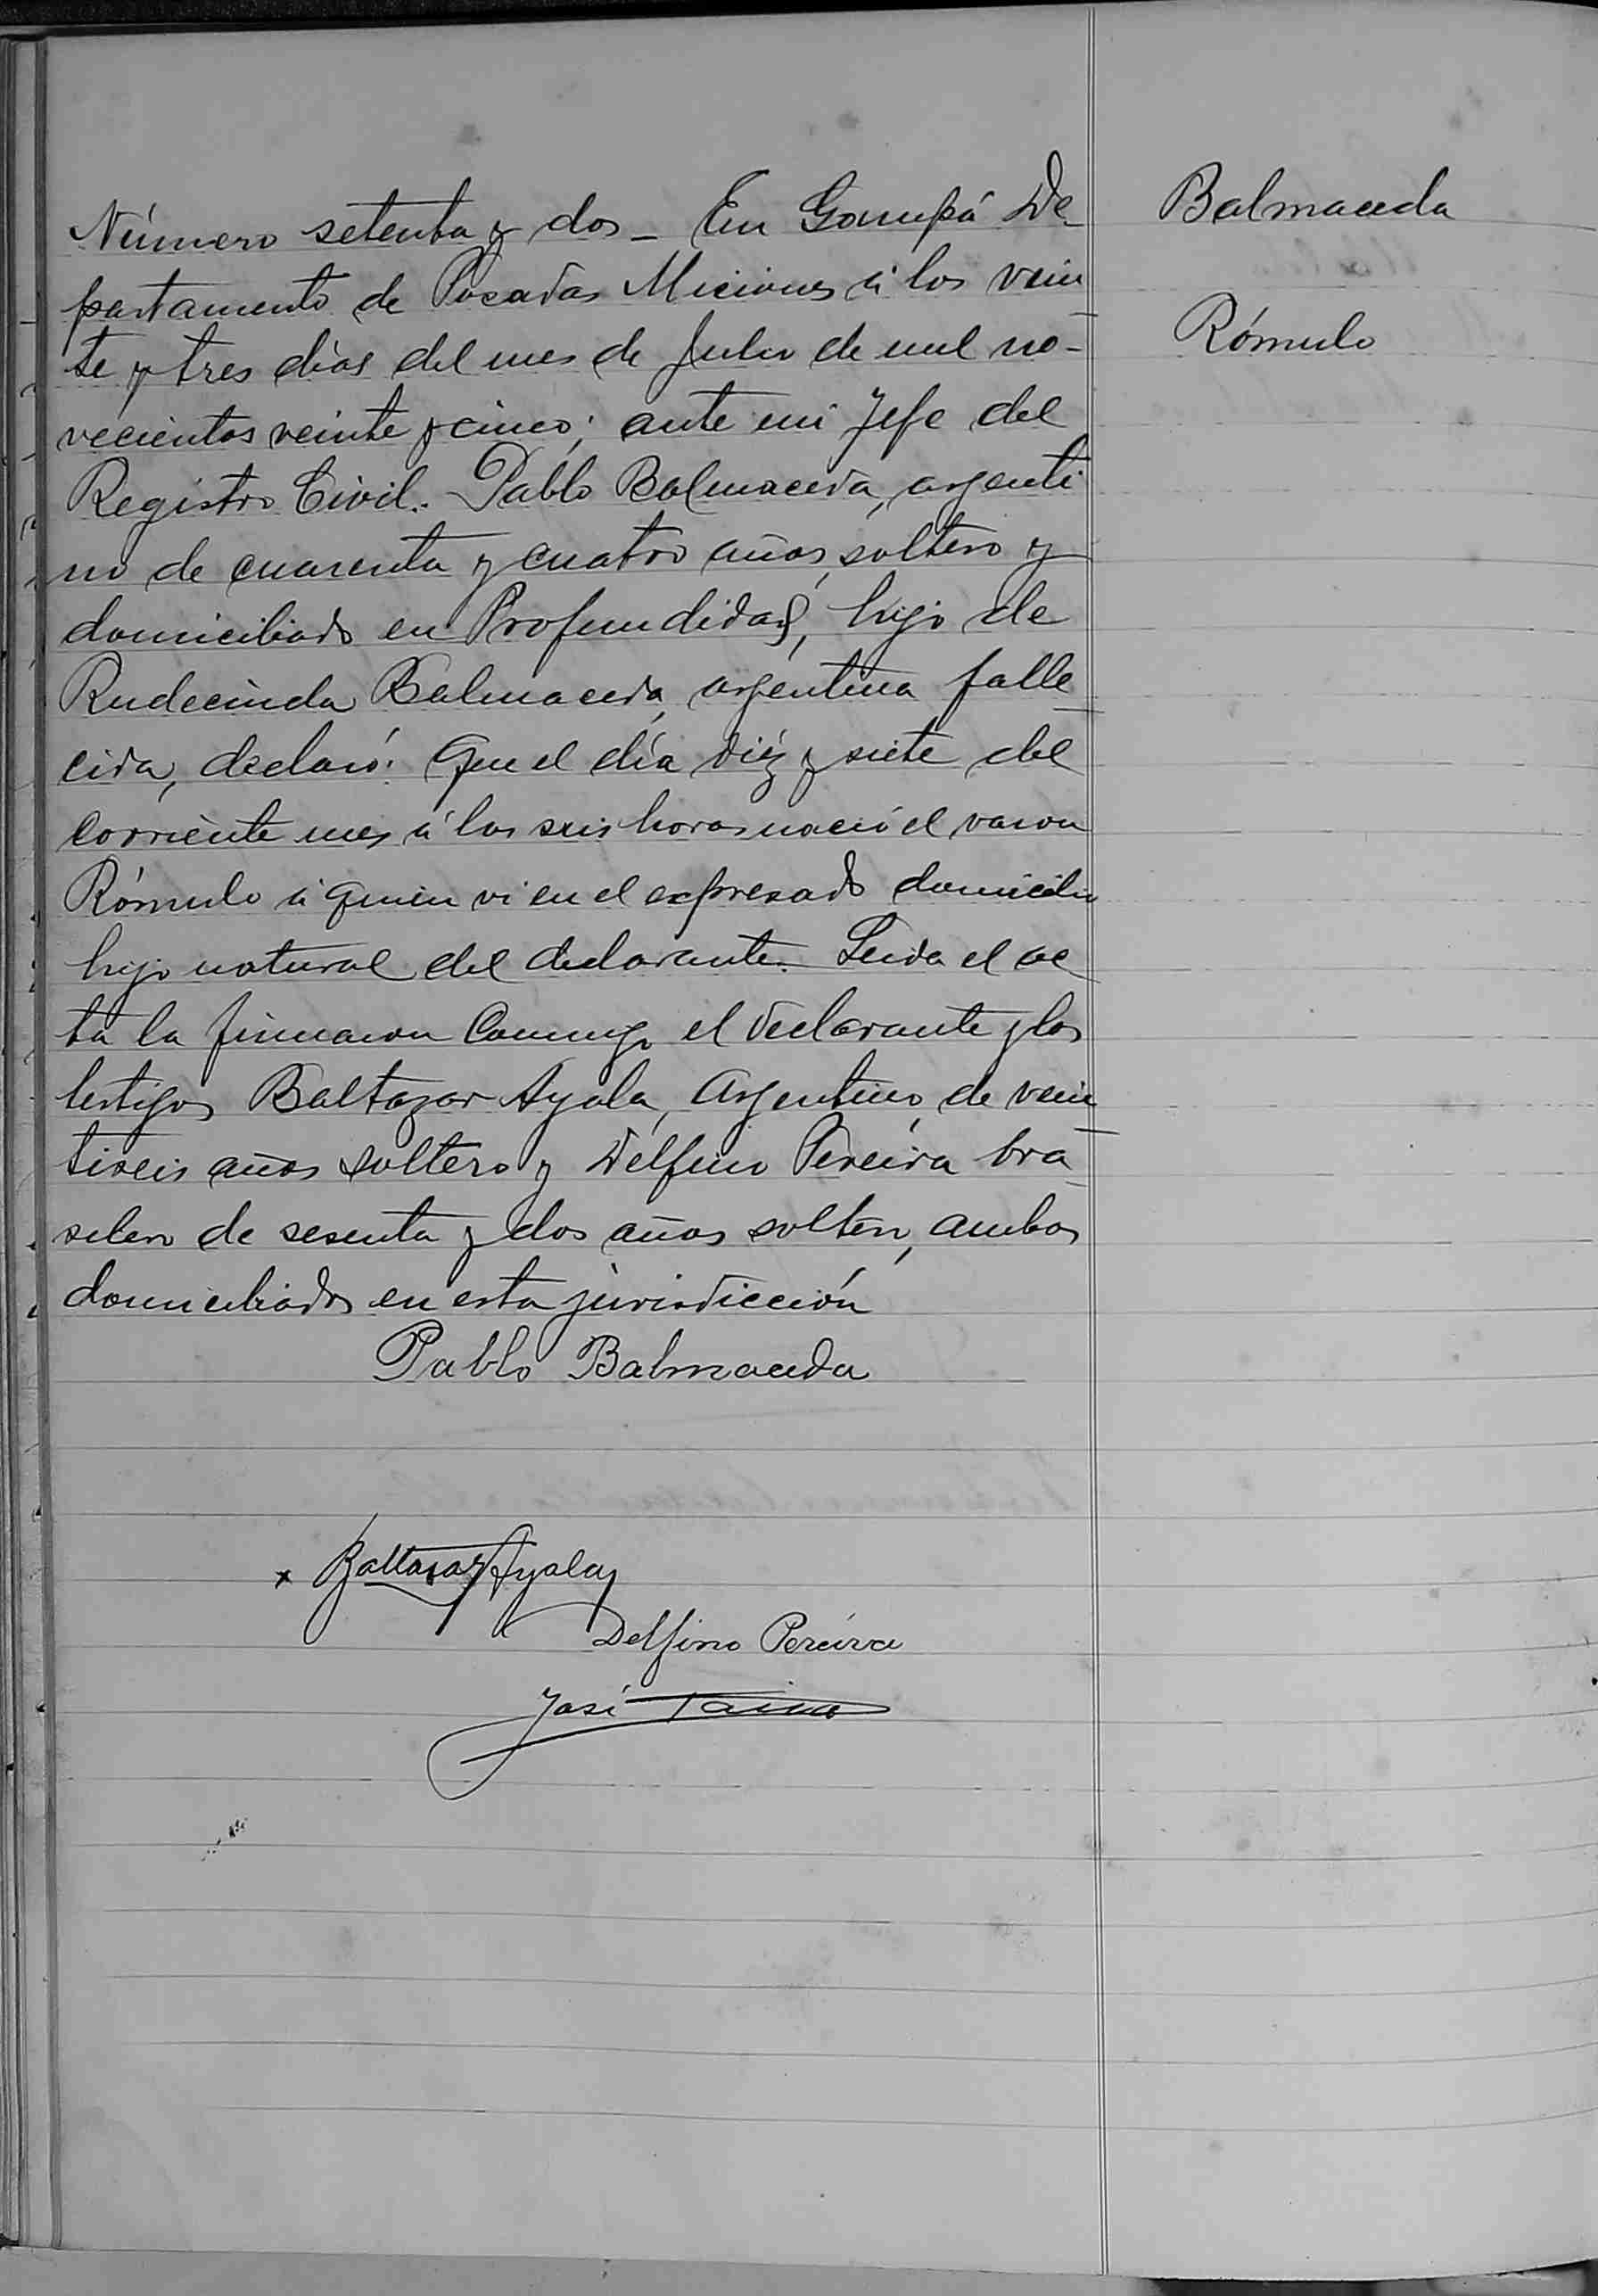 Número setenta y dos - En Garupá De
partamento de Posadas Miciones á los vein
te y tres días del mes de Julio de mil no-
vecientos veinte y cinco; ante mi Jefe del
Registro Civil. Pablo Balmaceda, argenti
no de cuarenta y cuatro años, soltero y
domiciliado en Profundidad, hijo de
Rudecinda Balmaceda, argentina falle
cida, declaró: Que el día diéz y siete del
corriente mes á las seis horas nació el varon
Rómulo á quien vi en el expresado domicilio
hijo natural del declarante. Leida el ac
ta la firmaron conmigo el declarante y los
testigos Baltazar Ayala, Argentino, de vein
tiseis años soltero y Delfino Pereira bra
silero de sesenta y dos años soltero, ambos
domiciliados en esta jurisdicción
Pablo Balmaceda
x Baltasar Ayala
Delfino Pereira
José
Balmaceda
Rómulo